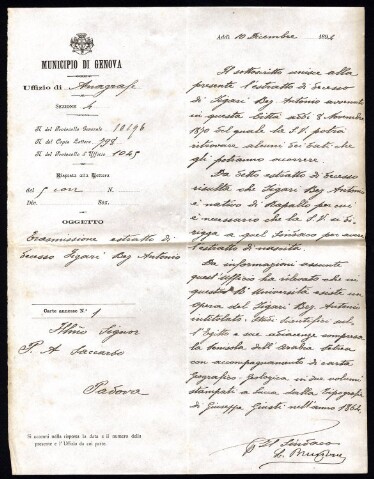 MUNICIPIO DI GENOVA
Uffizio di Anagrafe
SEZIONE 4
N. del Protocollo Generale 10196
N. del Copia Lettere 798
N. del Protocollo d'Uffizio 1045
Risposta alla Lettera
del 5 corr N.
Div. Sez.
OGGETTO
Trasmissione estratto di
decesso Figari Bey Antonio
Carte annesse N. 1
Illmo Signor
P. A. Saccardo
Padova
Si accenni nella risposta la data e il numero della
presente e l'Uffizio da cui parte
Addì 10 Dicembre 1894
Il sottoscritto unisce alla
presente l'estratto di decesso
di Figari Bey Antonio avvenuto
in questa Città addì 8 Novembre
1870 del quale la S. V. potrà
rilevare alcuni dei dati che
gli potranno occorrere.
Da detto estratto di decesso
risulta che Figari Bey Antonio
è nativo di Rapallo per cui
è necessario che la S. V. si di-
rigga a quel Sindaco per avere
l'estratto di nascita.
Da informazioni assunte
quest'Uffizio ha rilevato che in
questa R. Università esiste un
opera del Figari Bey Antonio
intitolato. Studi scientifici sul-
l'Egitto e sue adiacenze compresa
la Penisola dell'Arabia Petrea
con accompagnamento di carta
geografico-geologica in due volumi
stampati a Lucca dalla tipografia
di Giuseppe Giusti nell'anno 1864.
Il Sindaco